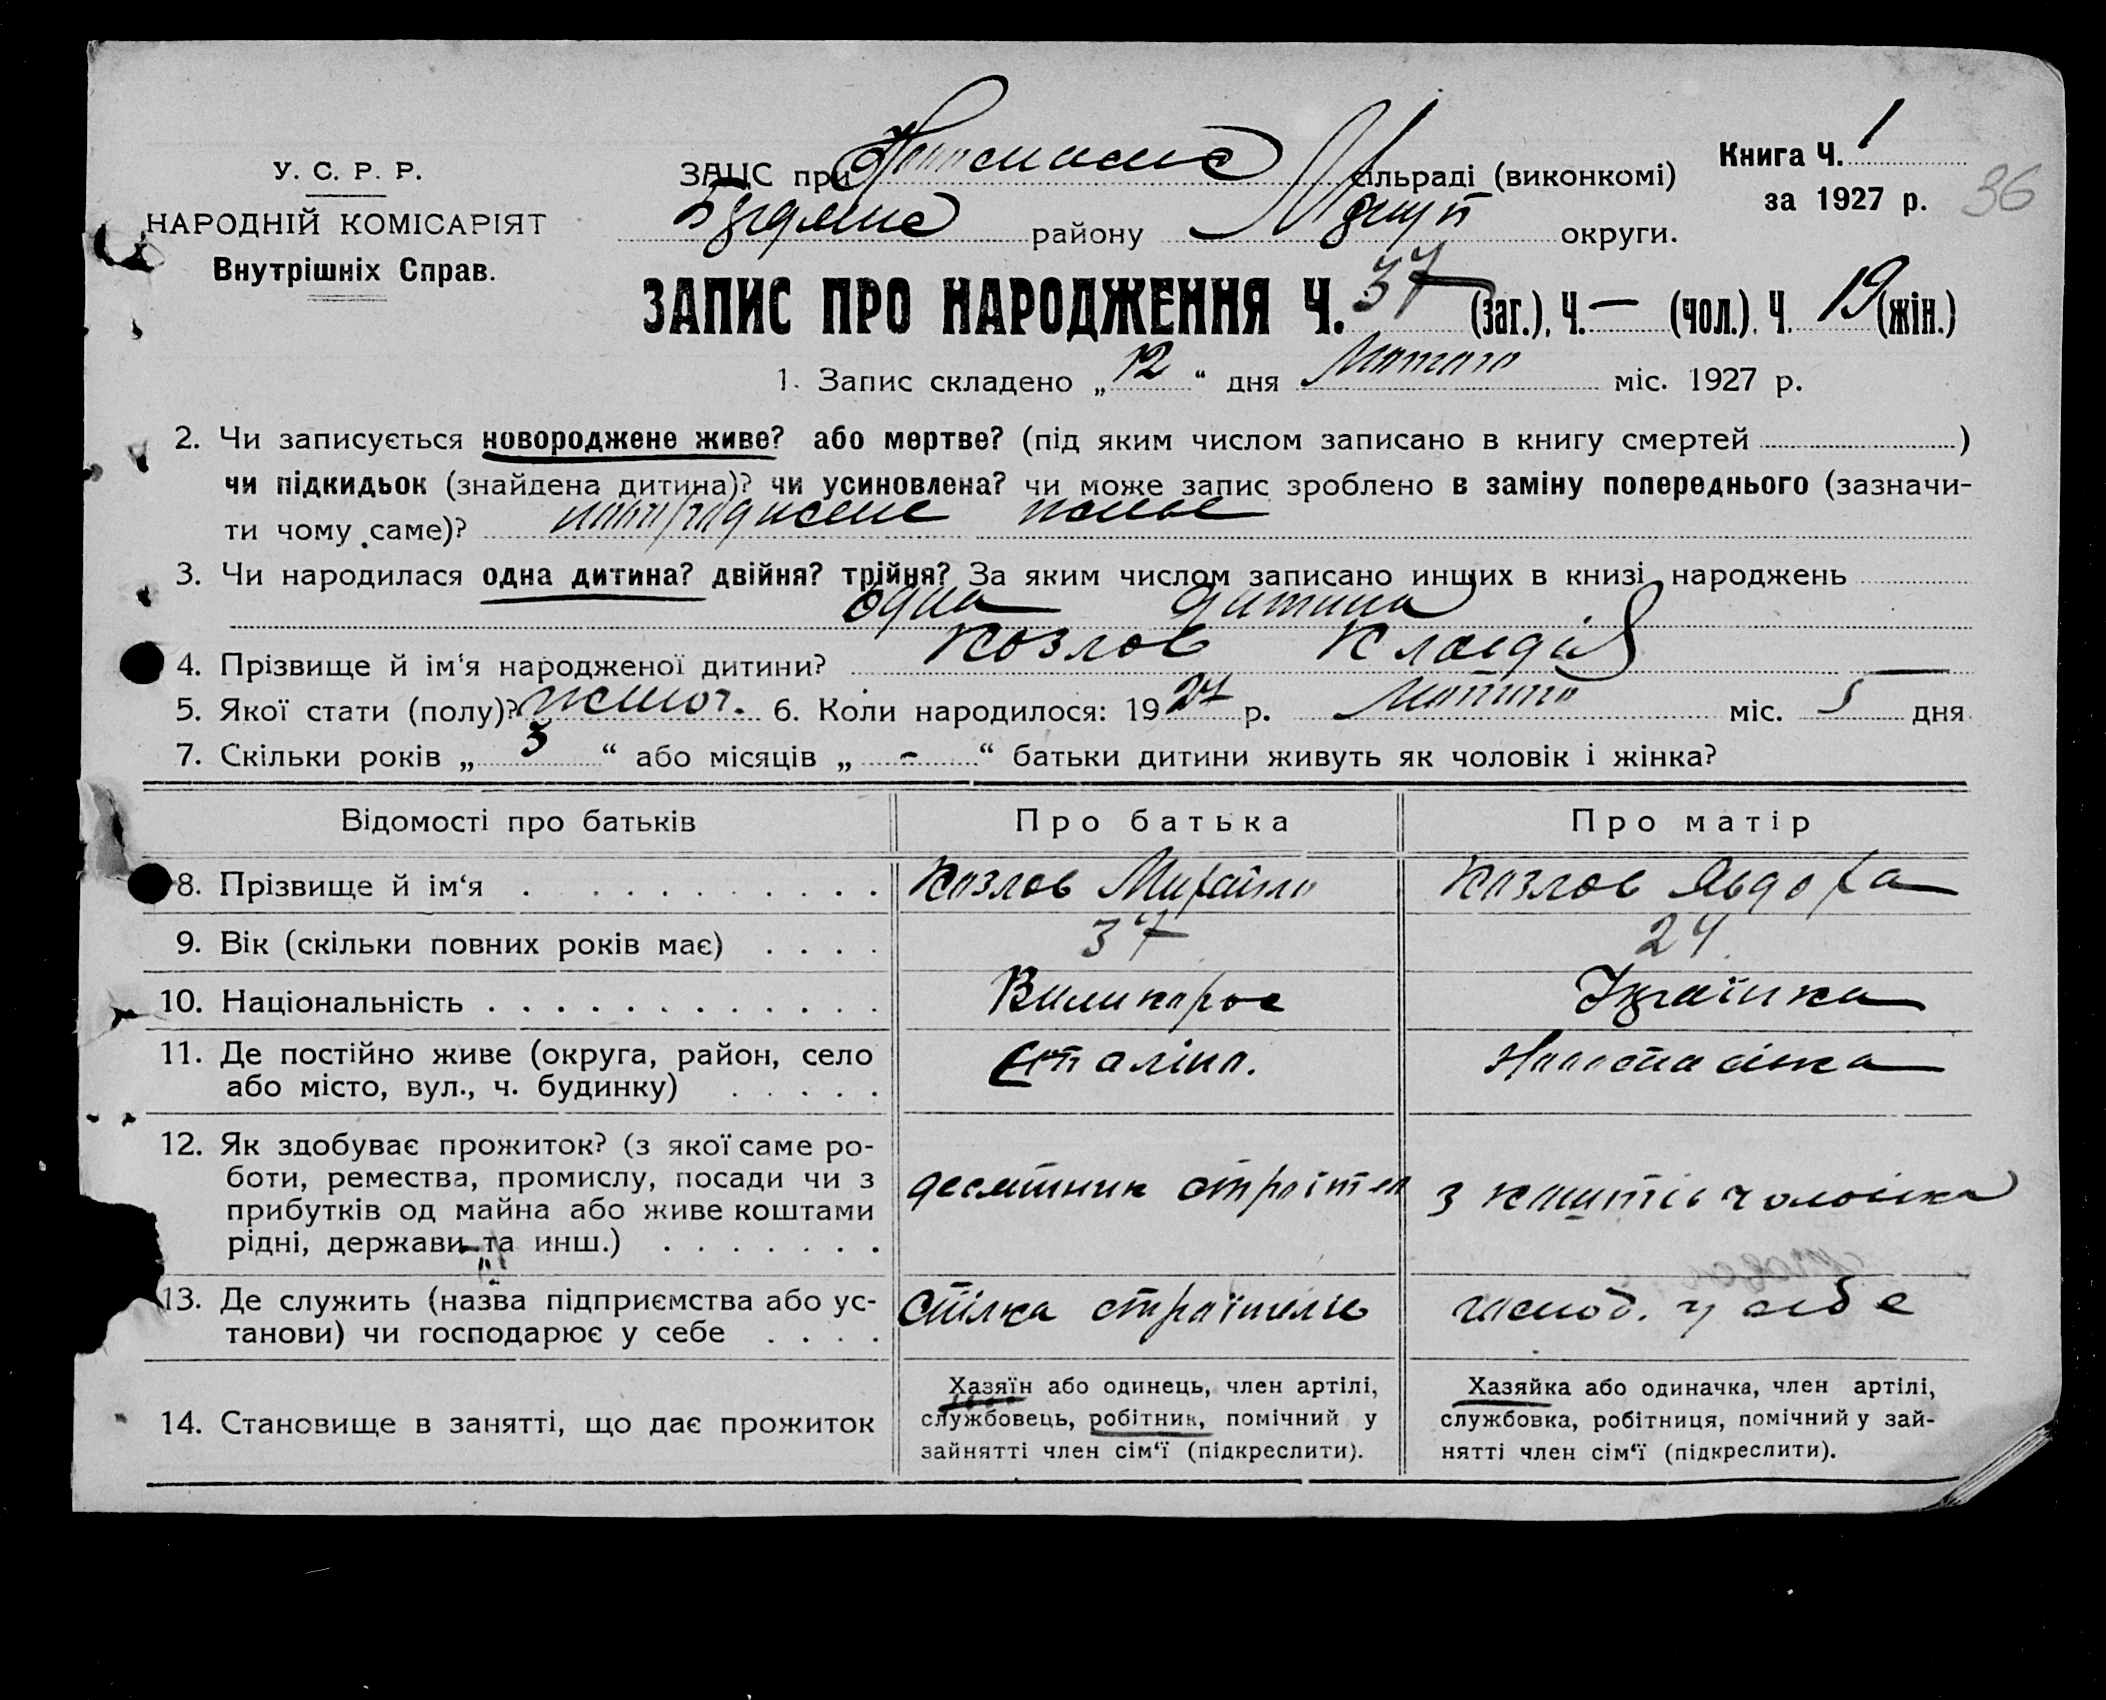 У. С. Р. Р.
НАРОДНІЙ КОМІСАРІЯТ
Внутрішніх Справ.
ЗАЦС при сільраді (виконкомі)
району округи.
Книга Ч. 1
за 1927 р.
36
ЗАПИС ПРО НАРОДЖЕННЯ Ч. 37 (заг.), Ч. — (чол.). Ч. 19 (жін.)
1. Запис складено „ 12 “ дня Лютого міс. 1927 р.
2. Чи записується новороджене живе? або мертве? (під яким числом записано в книгу смертей )
чи підкидьок (знайдена дитина)? чи усиновлена? чи може запис зроблено в заміну попереднього (зазначи-
ти чому саме)? новороджене живе
3. Чи народилася одна дитина? двійня? трійня? За яким числом записано инших в книзі народжень
одна дитина
4. Прізвище й ім‘я народженої дитини? Козлов Клавдія
5. Якої стати (полу)? жіноч. 6. Коли народилося: 1927 р. Лютого міс. 5 дня
7. Скільки років „ 3 “ або місяців „ - “ батьки дитини живуть як чоловік і жінка?
Відомості про батьків Про батька Про матір
8. Прізвище й ім‘я Козлов Михайло Козлов Явдоха
9. Вік (скільки повних років має) 37 24
10. Національність Виликорос Україїнка
11. Де постійно живе (округа, район, село
або місто, вул., ч. будинку) Сталіно.
12. Як здобуває прожиток? (з якої саме ро-
боти, ремества, промислу, посади чи з
прибутків од майна або живе коштами
рідні, держави та инш.) десятник строітел з коштів чоловіка
13. Де служить (назва підприємства або ус-
танови) чи господарює у себе Спілка строітелів господ. у себе
14. Становище в занятті, що дає прожиток
Хазяїн або одинець, член артілі,
службовець, робітник, помічний у
зайнятті член сім‘ї (підкреслити).
Хазяйка або одиначка, член артілі,
службовка, робітниця, помічний у зай-
нятті член сім‘ї (підкреслити).